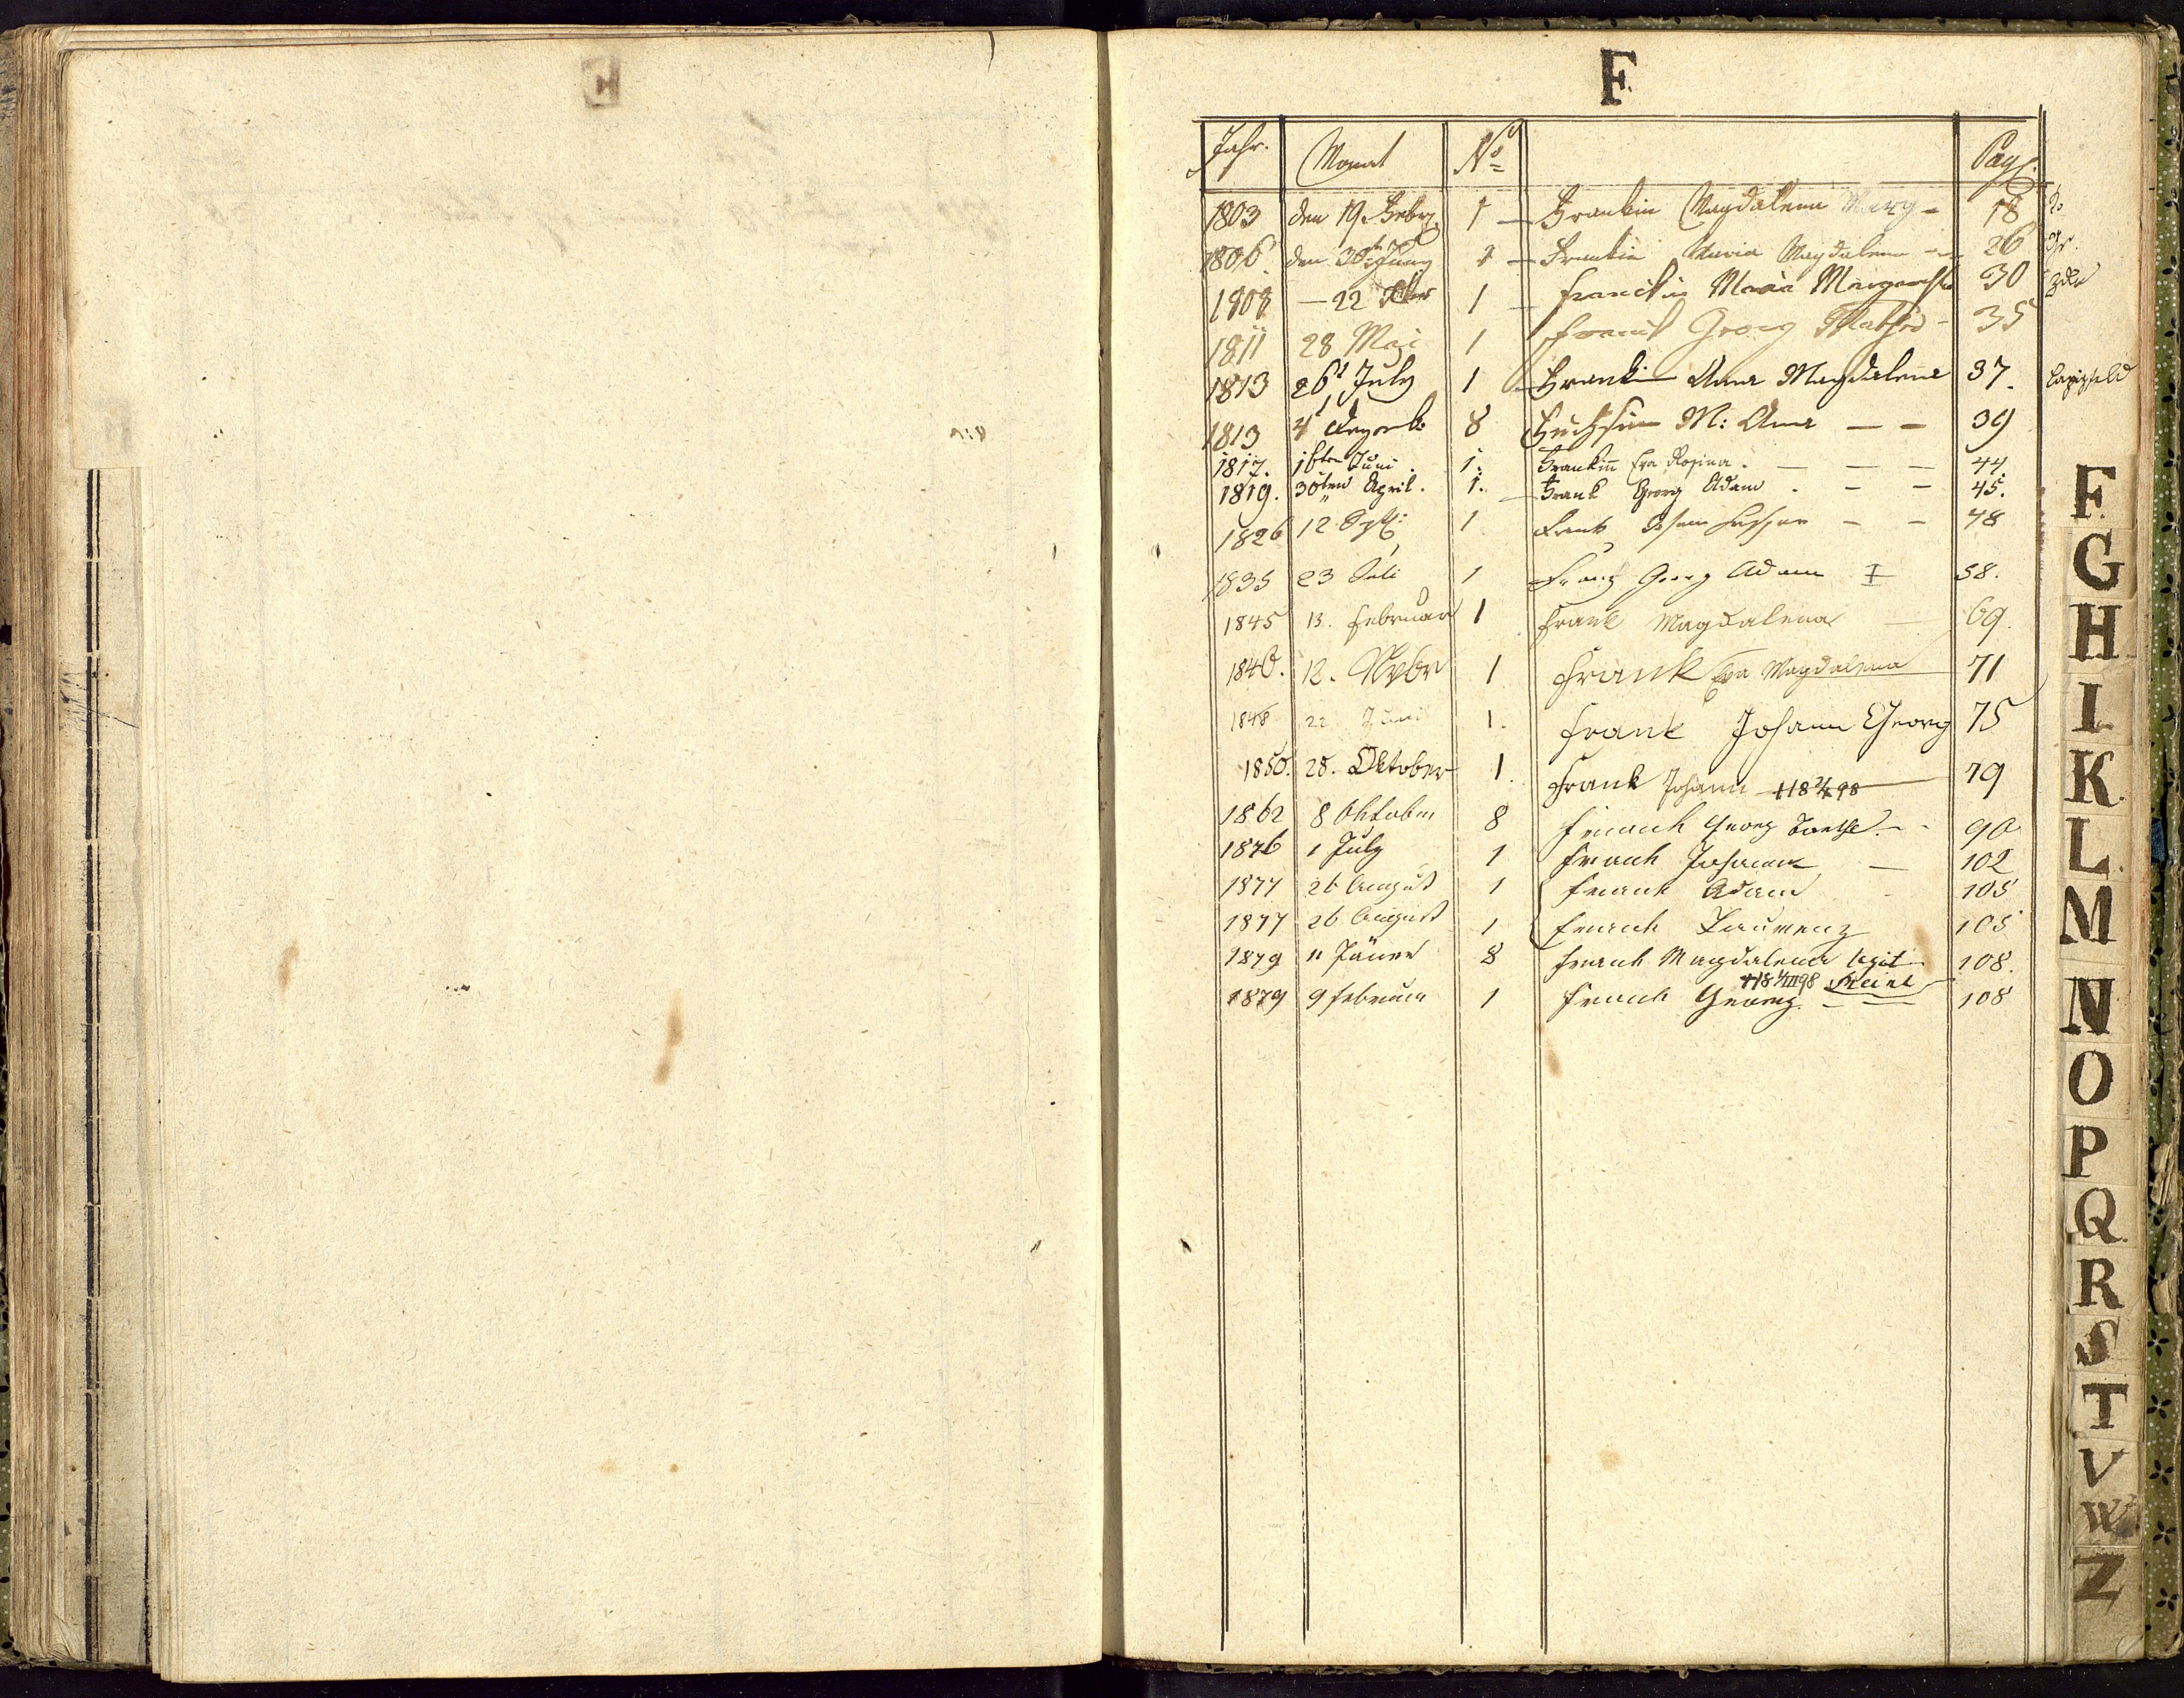 F.
Jahr. Monat No Pag.
1803 den 19 Febr. 1 Frankin Magdalena Marg - 18
1806 den 30ten Juny 1 Frankin Maria Magdalena - 26
1808 - 22 1 Franckin Maria Margaretha 30
1811 28 Maji 1 Franck Georg - 35
1813 26t July 1 Frankin Anna Magdalena 37.
1813 4t Dezemb: 8 Fuchsin M: Anna - - 39
1817. 16ten Juni. 1. Frankin Eva Rosina. - - - 44.
1819. 30ten April. 1. Frank Georg Adam. - - 45.
1826 12 Sept: 1 Frank - - 48
1835 23 Juli 1 Franz Georg Adam I 58.
1845 13. Februar 1 Frank Magdalena - 69.
1846. 12. Novbr 1 Frank Eva Magdalena 71
1848 22 Juni 1. Frank Johann Georg 75
1850. 28. Oktober 1. Frank Johann 79
1862 8 Oktober 8 Frank Georg 90
1876 1 July 1 Frank Johann - 102
1877 26 August 1 Frank Adam - 105
1877 26 August 1 Frank Laurenz 105
1879 11 Jäner 8 Frank Magdalena legit 108.
1879 9 Februar 1 Frank Georg. - - 108
F.
G
H
I
K
L
M
N
O
P
Q
R
S
T
V
W
Z